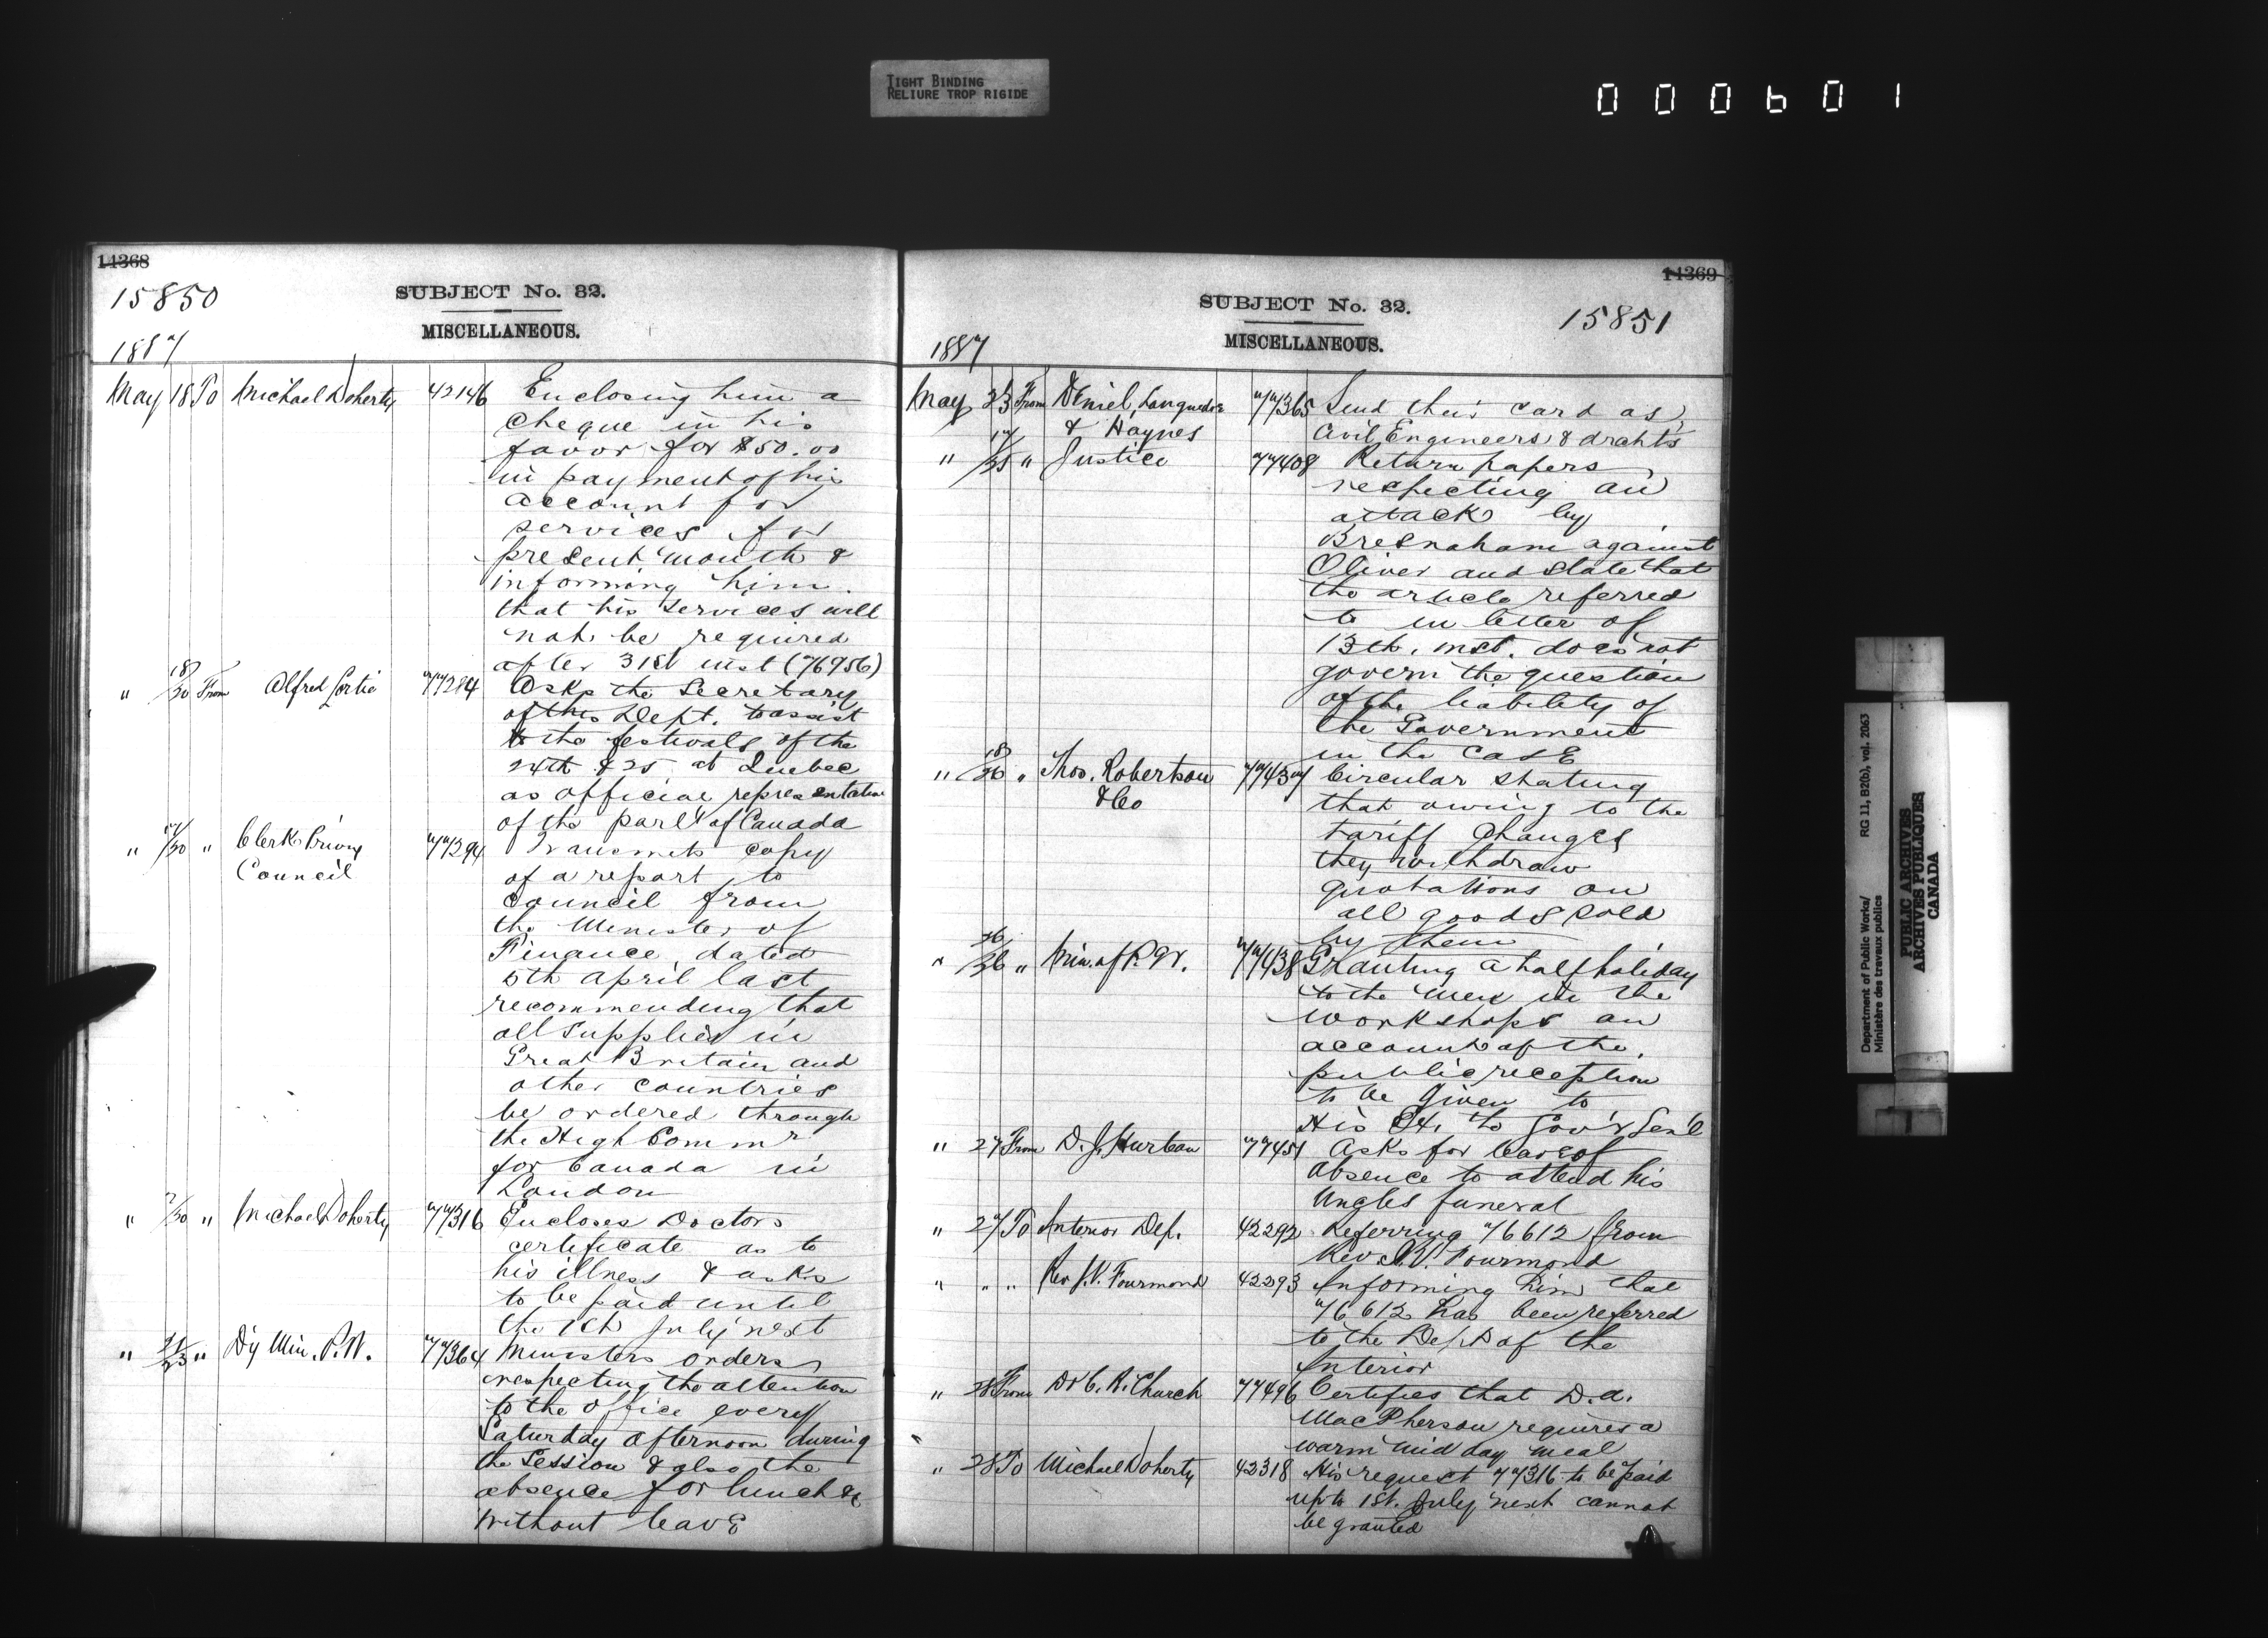 TIGHT BINDING
RELIURE TROP RIGIDE
000601
14368
15850
SUBJECT No. 32.
MISCELLANEOUS.
1887
May 18 To Michael Doherty 42146 Enclosing him a
cheque in his
favor for $50.00
in payment of his
account for
services for
present month &
informing him
that his services will
not be required
after 31st inst (76956)
" 18/20 From Alfred Cortie 77284 Asks the Secretary
of this Dept. to assist
to the festivals of the
24th & 25 at Quebec
as official representative
of the parlt of Canada
" 17/20 " Clerk Privy 77294 Transmits copy
Council of a report to
Council from
the Minister of
Finance, dated
5th April last
recommending that
all supplies in
Great Britain and
other countries
be ordered through
the High Commr
for Canada in
London
" /20 " Michael Doherty 77316 Encloses Doctors
certificate as to
his illness & asks
to be paid until
the 1st July next
" 21/23 " Dy Min. P.W. 77364 Ministers orders
respecting the attention
to the office every
Saturday afternoon during
the Session & also the
absence for lunch &c
without leave
14369
SUBJECT No. 32.
15851
MISCELLANEOUS.
1887
May 23 From Deniel, 77365 Send their card as
& Haynes Civil Engineers &
" 17/25 " Justice 77408 Return papers
respecting an
attack by
Bresnahan against
Oliver and state that
the article referred
to in letter of
13th. inst. does not
govern the question
of the liability of
the Government
in the case
" 18/26 " Thos. Robertson 77437 Circular stating
& Co that owing to the
tariff changes
they withdraw
quotations on
all goods sold
by them
" 26/26 " Min. of P.W. 77438 Granting a half holiday
to the men in the
workshops on
account of the
public reception
to be given to
His Ex. to Gov'r Gen'l
" 27 From D. J. Hurteau 77451 Asks for leave of
absence to attend his
Uncles funeral
" 27 To Interior Dep. 42292 Referring 76612 from
Rev J.V. Fourmond
" " " Rev J.V. Fourmond 42293 Informing him that
76612 has been referred
to the Dept of the
Interior
" 28 From Dr C. R. Church 77496 Certifies that D.A.
MacPherson requires a
warm mid day meal
" 28 To Michael Doherty 42318 His request 77316 to be paid
up to 1st. July next cannot
be granted
Department of Public Works/ RG 11, B2(b), vol. 2063
Ministère des travaux publics
PUBLIC ARCHIVES
ARCHIVES PUBLIQUES
CANADA